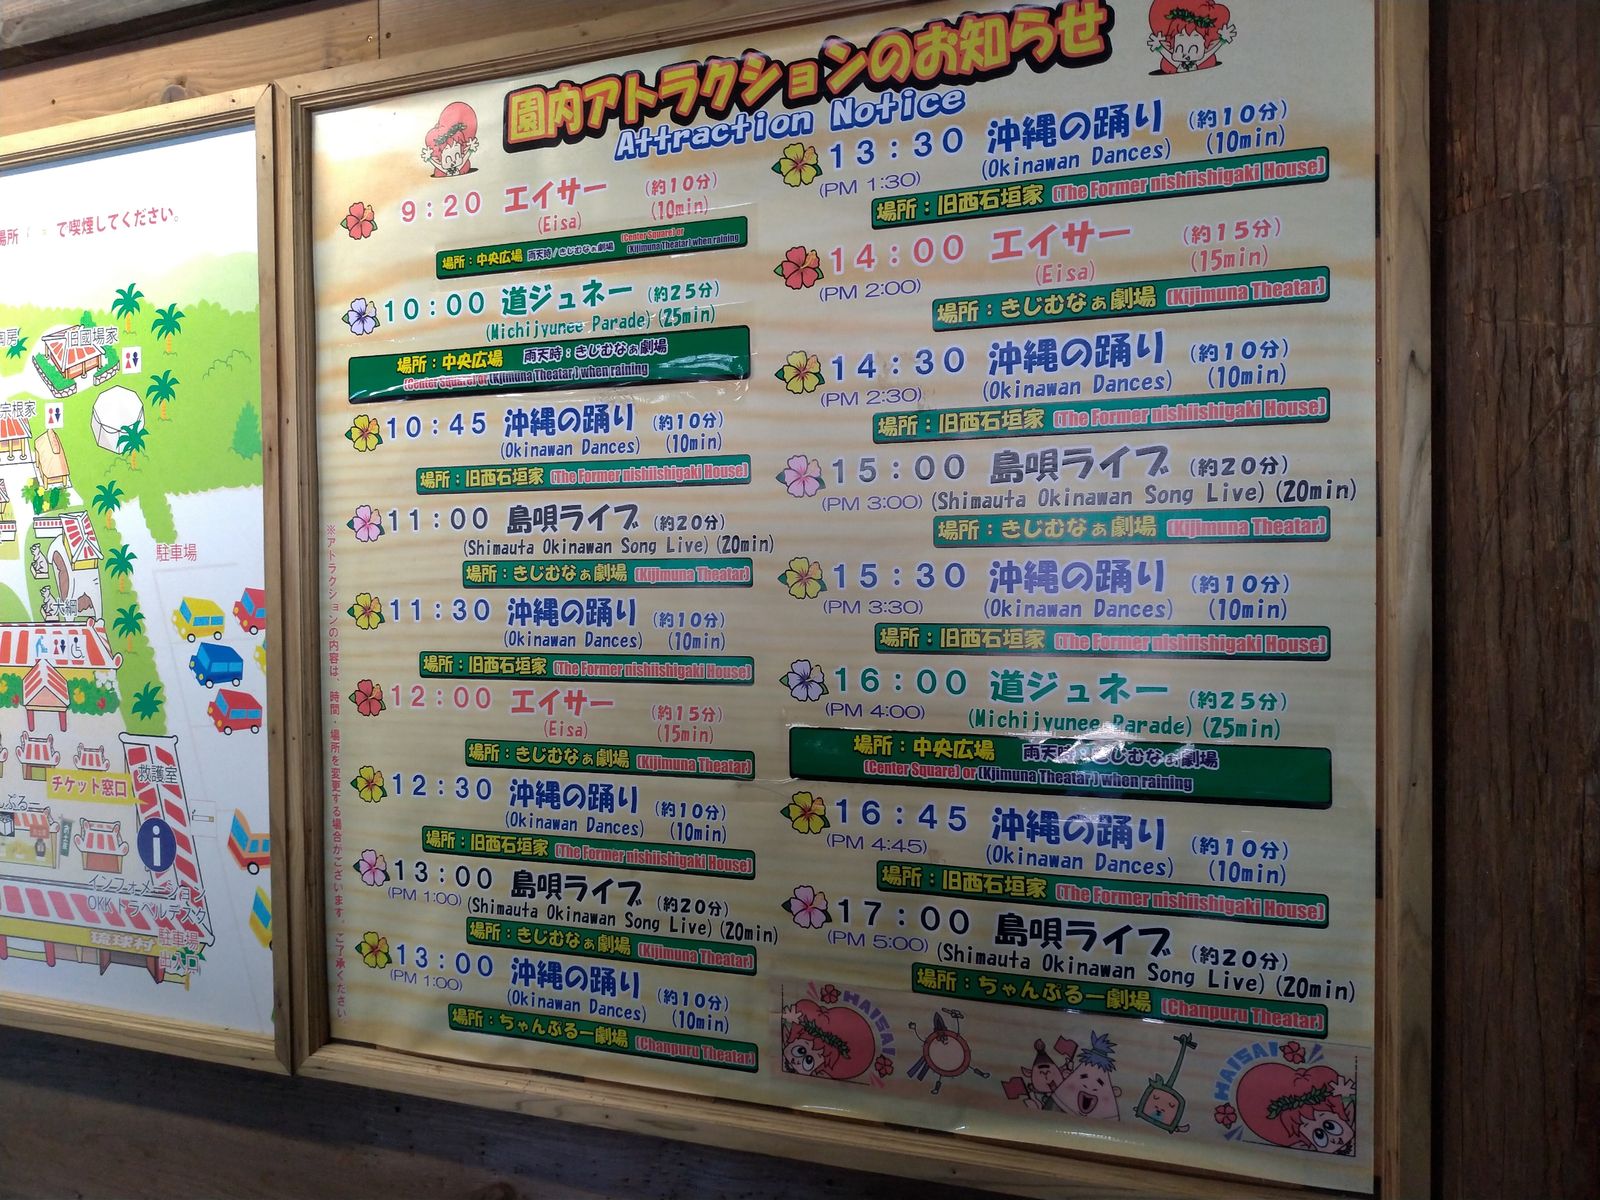 園内アトラクションのお知らせ
Attraction Notice
9:20 エイサー (約10分)
(Eisa) (10min)
場所:中央広場 雨天時/きじむなぁ劇場 (Center Square) or (Kijimuna Theatar) when raining
10:00 道ジュネー (約25分)
(Michijyunee Parade) (25min)
場所:中央広場 雨天時:きじむなぁ劇場
(Center Square) or (Kjimuna Theatar) when raining
10:45 沖縄の踊り (約10分)
(Okinawan Dances) (10min)
場所:旧西石垣家 (The Former nishiishigaki House)
11:00 島唄ライブ (約20分)
(Shimauta Okinawan Song Live) (20min)
場所:きじむなぁ劇場 (Kijimuna Theatar)
11:30 沖縄の踊り (約10分)
(Okinawan Dances) (10min)
場所:旧西石垣家 (The Former nishiishigaki House)
12:00 エイサー (約15分)
(Eisa) (15min)
場所:きじむなぁ劇場 (Kijimuna Theatar)
12:30 沖縄の踊り (約10分)
(Okinawan Dances) (10min)
場所:旧西石垣家 (The Former nishiishigaki House)
13:00 島唄ライブ (約20分)
(PM 1:00) (Shimauta Okinawan Song Live) (20min)
場所:きじむなぁ劇場 (Kijimuna Theatar)
13:00 沖縄の踊り (約10分)
(PM 1:00) (Okinawan Dances) (10min)
場所:ちゃんぷるー劇場 (Chanpuru Theatar)
13:30 沖縄の踊り (約10分)
(PM 1:30) (Okinawan Dances) (10min)
場所:旧西石垣家 (The Former nishiishigaki House)
14:00 エイサー (約15分)
(PM 2:00) (Eisa) (15min)
場所:きじむなぁ劇場 (Kijimuna Theatar)
14:30 沖縄の踊り (約10分)
(PM 2:30) (Okinawan Dances) (10min)
場所:旧西石垣家 (The Former nishiishigaki House)
15:00 島唄ライブ (約20分)
(PM 3:00) (Shimauta Okinawan Song Live) (20min)
場所:きじむなぁ劇場 (Kijimuna Theatar)
15:30 沖縄の踊り (約10分)
(PM 3:30) (Okinawan Dances) (10min)
場所:旧西石垣家 (The Former nishiishigaki House)
16:00 道ジュネー (約25分)
(PM 4:00) (Michijyunee Parade) (25min)
場所:中央広場 雨天時:きじむなぁ劇場
(Center Square) or (Kjimuna Theatar) when raining
16:45 沖縄の踊り (約10分)
(PM 4:45) (Okinawan Dances) (10min)
場所:旧西石垣家 (The Former nishiishigaki House)
17:00 島唄ライブ (約20分)
(PM 5:00) (Shimauta Okinawan Song Live) (20min)
場所:ちゃんぷるー劇場 (Chanpuru Theatar)
HAISAI
HAISAI
※アトラクションの内容は、時間・場所を変更する場合がございます。ご了承ください
で喫煙してください。
旧國場家
宗根家
駐車場
大綱
救護室
チケット窓口
インフォメーション
OKKトラベルデスク
琉球村
駐車場
出入口